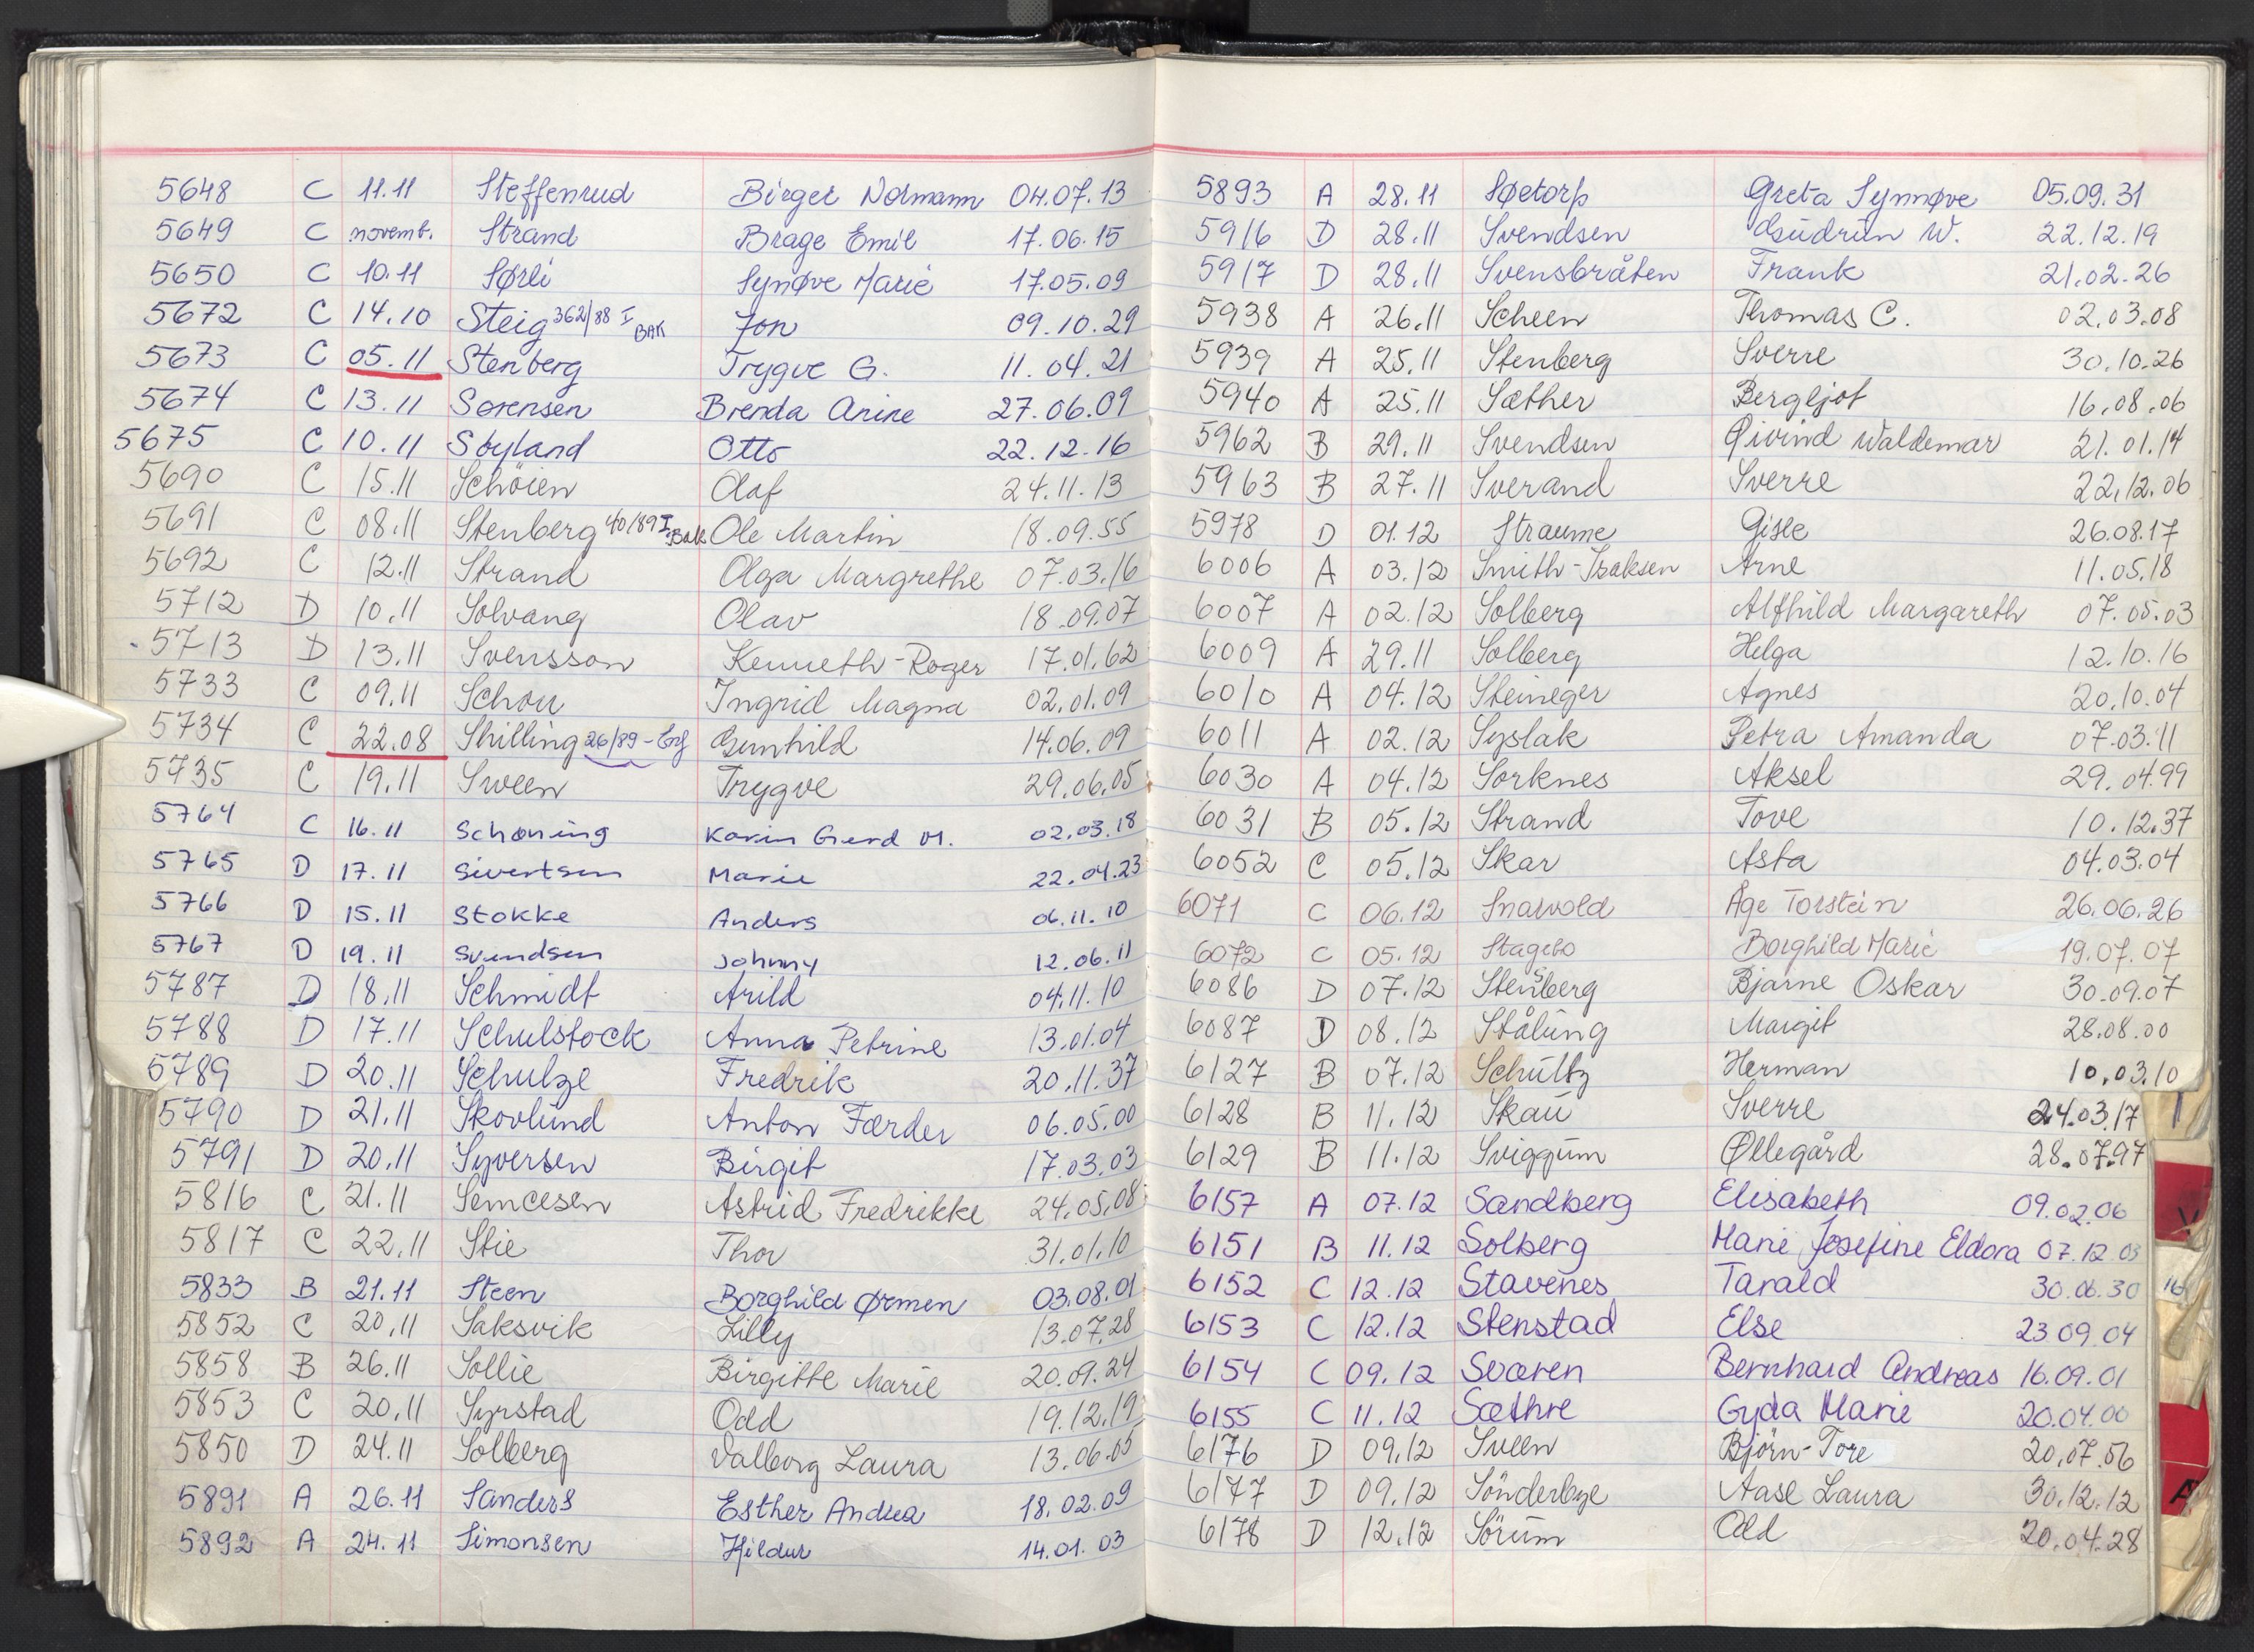 5648 C 11.11 Steffenrud Birger Normann 04.07.13
5649 C novemb. Strand Brage Emil 17.06.15
5650 C 10.11 Sørli Synøve Marie 17.05.09
5672 C 14.10 Steig 362/88 I BAK Jon 09.10.29
5673 C 05.11 Stenberg Trygve G. 11.04.21
5674 C 13.11 Sorensen Brenda Anine 27.06.09
5675 C 10.11 Soyland Otto 22.12.16
5690 C 15.11 Schöien Olaf 24.11.13
5691 C 08.11 Stenberg 40/89 I Bak Ole Martin 18.09.55
5692 C 12.11 Strand Olga Margrethe 07.03.16
5712 D 10.11 Solvang Olav 18.09.07
5713 D 13.11 Svensson Kenneth-Roger 17.01.62
5733 C 09.11 Schou Ingrid Magna 02.01.09
5734 C 22.08 Shilling 26/89 Gunhild 14.06.09
5735 C 19.11 Sween Trygve 29.06.05
5764 C 16.11 Schøning Karin Gerd M. 02.03.18
5765 D 17.11 Sivertsen Marie 22.04.23
5766 D 15.11 Stokke Anders 06.11.10
5767 D 19.11 Svendsen Johnny 12.06.11
5787 D 18.11 Schmidt Arild 04.11.10
5788 D 17.11 Schulstock Anna Petrine 13.01.04
5789 D 20.11 Schulze Fredrik 20.11.37
5790 D 21.11 Skovlund Anton Færder 06.05.00
5791 D 20.11 Syversen Birgit 17.03.03
5816 C 21.11 Semcesen Astrid Fredrikke 24.05.08
5817 C 22.11 Stie Thor 31.01.10
5833 B 21.11 Steen Borghild Ørmen 03.08.01
5852 C 20.11 Saksvik Lilly 13.07.28
5858 B 26.11 Sollie Birgitte Marie 20.09.24
5853 C 20.11 Syrstad Odd 19.12.19
5850 D 24.11 Solberg Valborg Laura 13.06.05
5891 A 26.11 Sanders Esther Andrea 18.02.09
5892 A 24.11 Simonsen Hildur 14.01.03
5893 A 28.11 Søetorp Greta Synnøve 05.09.31
5916 D 28.11 Svendsen Gudrun W. 22.12.19
5917 D 28.11 Svensbråten Frank 21.02.26
5938 A 26.11 Scheen Thomas C. 02.03.08
5939 A 25.11 Stenberg Sverre 30.10.26
5940 A 25.11 Sæther Bergljot 16.08.06
5962 B 29.11 Svendsen Øivind Waldemar 21.01.14
5963 B 27.11 Sverand Sverre 22.12.06
5978 D 01.12 Straume Gisle 26.08.17
6006 A 03.12 Smith-Isaksen Arne 11.05.18
6007 A 02.12 Solberg Alfhild Margareth 07.05.03
6009 A 29.11 Solberg Helga 12.10.16
6010 A 04.12 Steineger Agnes 20.10.04
6011 A 02.12 Syslak Petra Amanda 07.03.11
6030 A 04.12 Sorknes Aksel 29.04.99
6031 B 05.12 Strand Tove 10.12.37
6052 C 05.12 Skar Asta 04.03.04
6071 C 06.12 Snarvold Åge Torstein 26.06.26
6072 C 05.12 Stagebo Borghild Marie 19.07.07
6086 D 07.12 Stensberg Bjarne Oskar 30.09.07
6087 D 08.12 Ståling Margit 28.08.00
6127 B 07.12 Schultz Herman 10.03.10
6128 B 11.12 Skau Sverre 24.03.17
6129 B 11.12 Sviggum Øllegård 28.07.97
6157 A 07.12 Sandberg Elisabeth 09.02.06
6151 B 11.12 Solberg Marie Josefine Eldora 07.12.03
6152 C 12.12 Stavenes Tarald 30.06.30
6153 C 12.12 Stenstad Else 23 09.04
6154 C 09.12 Svaren Bernhard Andreas 16.09.01
6155 C 11.12 Sæthre Gyda Marie 20.04.00
6176 D 09.12 Sveen Björn-Tore 20.07.56
6177 D 09.12 Sönderbye Aase Laura 30.12.12
6178 D 12.12 Sörum Odd 20.04.28